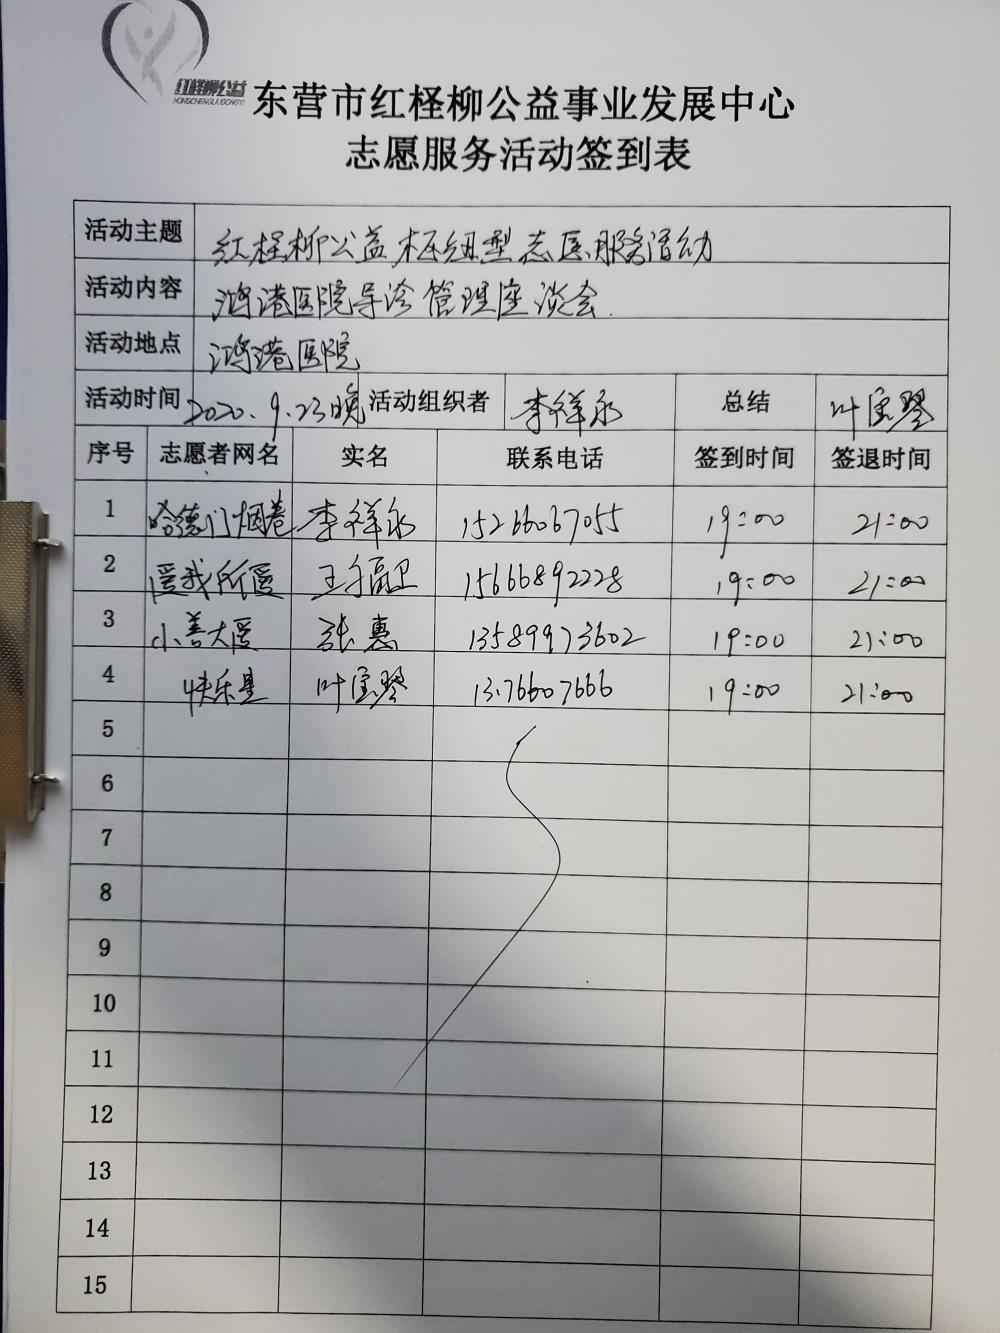 红柽柳公益
HONGCHENGLIUGONGYI
东营市红柽柳公益事业发展中心
志愿服务活动签到表
活动主题 红柽柳公益枢纽型志愿服务活动
活动内容 鸿港医院导诊管理座谈会.
活动地点 鸿港医院
活动时间 2020.9.23晚 活动组织者 李祥永 总结 叶宝琴
序号 志愿者网名 实名 联系电话 签到时间 签退时间
1 哈德门烟卷 李祥永 15266067055 19:00 21:00
2 爱我所爱 王卫 15666892228 19:00 21:00
3 小善大爱 张惠 13589973602 19:00 21:00
4 快乐星 叶宝琴 13.76607666 19:00 21:00
5
6
7
8
9
10
11
12
13
14
15